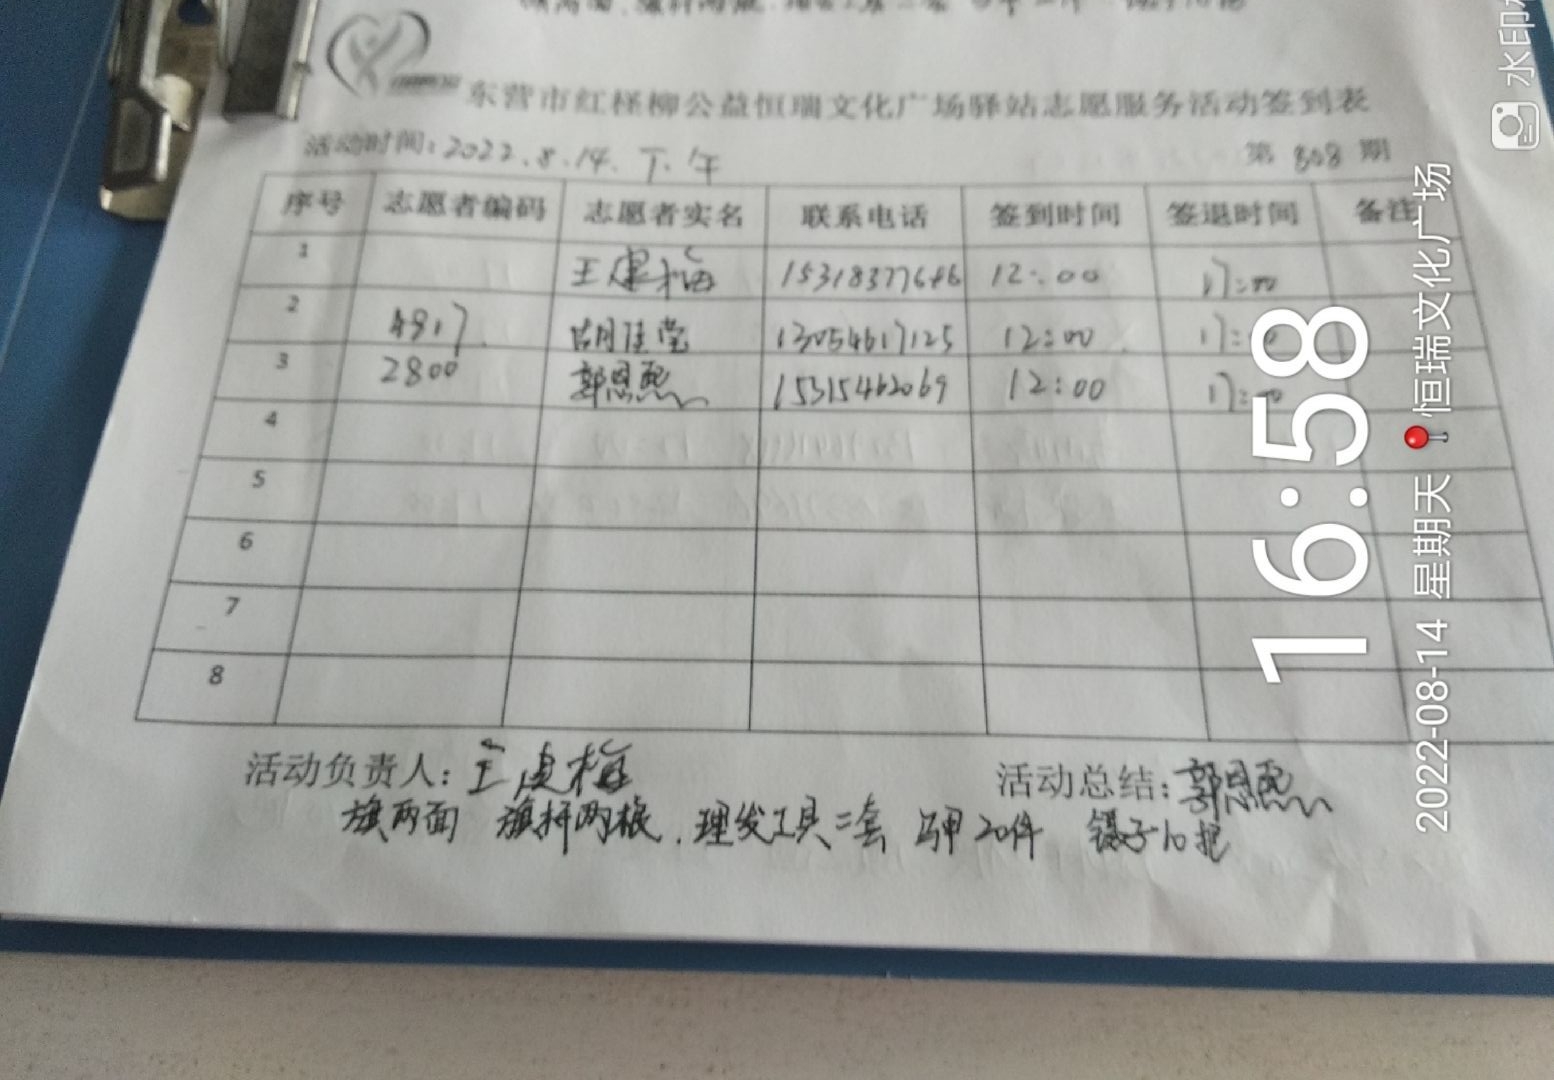 东营市红柽柳公益恒瑞文化广场驿站志愿服务活动签到表
活动时间:2022.8.14.下午 第 808 期
序号 志愿者编码 志愿者实名 联系电话 签到时间 签退时间 备注
1 王建梅 15318377646 12:00 17:00
2 4917 胡佳莹 13054617125 12:00 17:00
3 2800 郭恩熙 15315462069 12:00 17:00
4
5
6
7
8
活动负责人:王建梅 活动总结:郭恩熙
旗两面 旗杆两根.理发工具二套 马甲20件 镊子10把
16:58
2022-08-14 星期天 恒瑞文化广场
水印